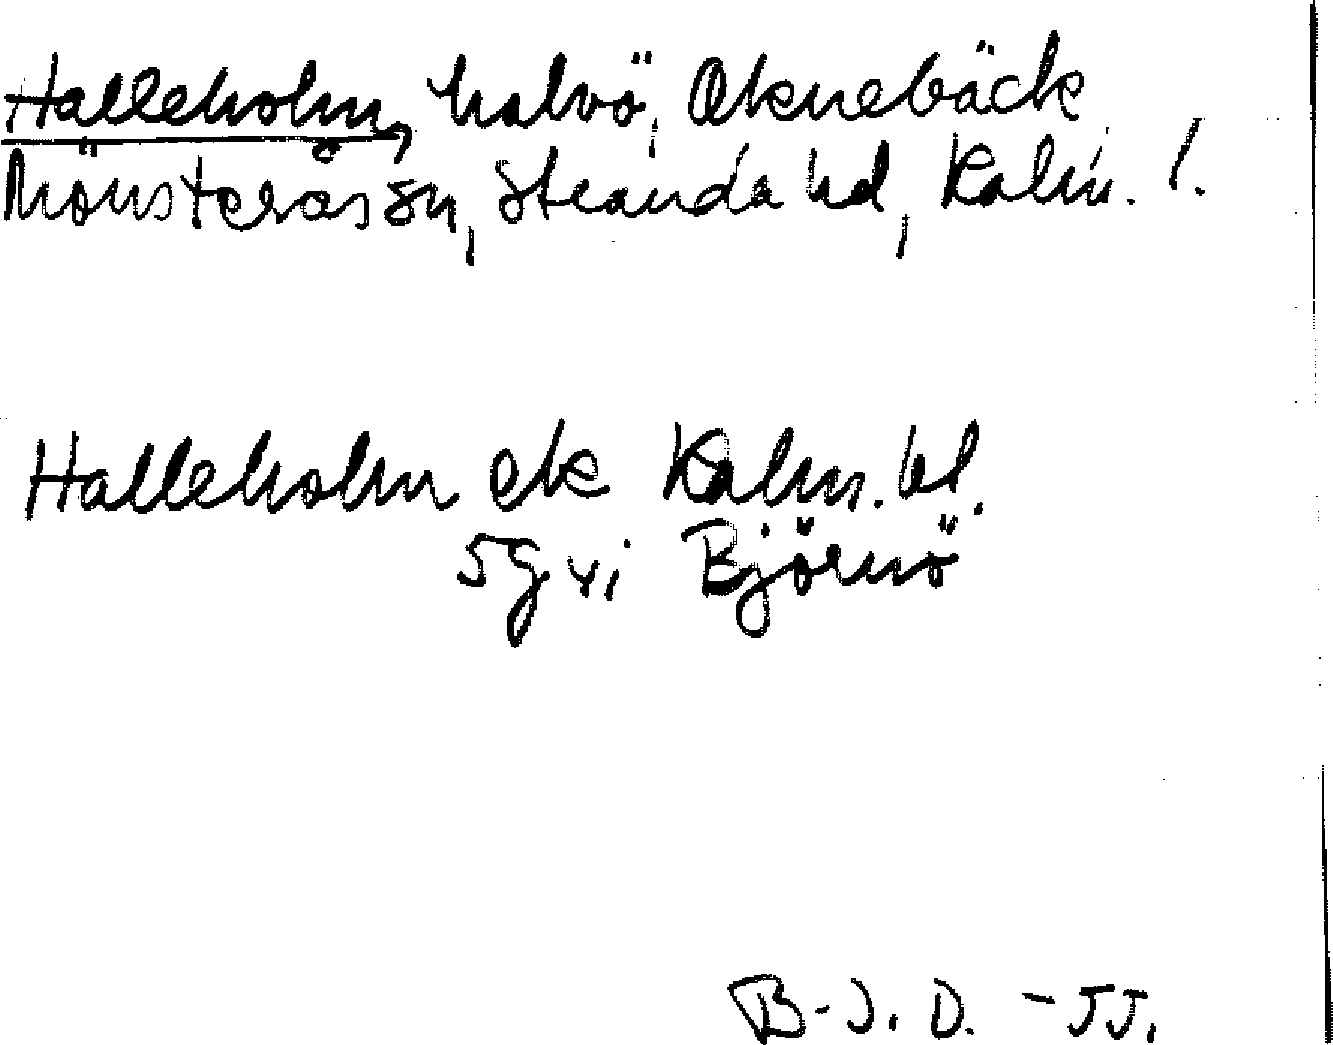 Halleholm, halvö, Oknebäck
Mönsterås sn, Stranda hd, Kalm. l.
Halleholm ek Kalm. bl.
5g vi Björnö
B-J. D. - 55.